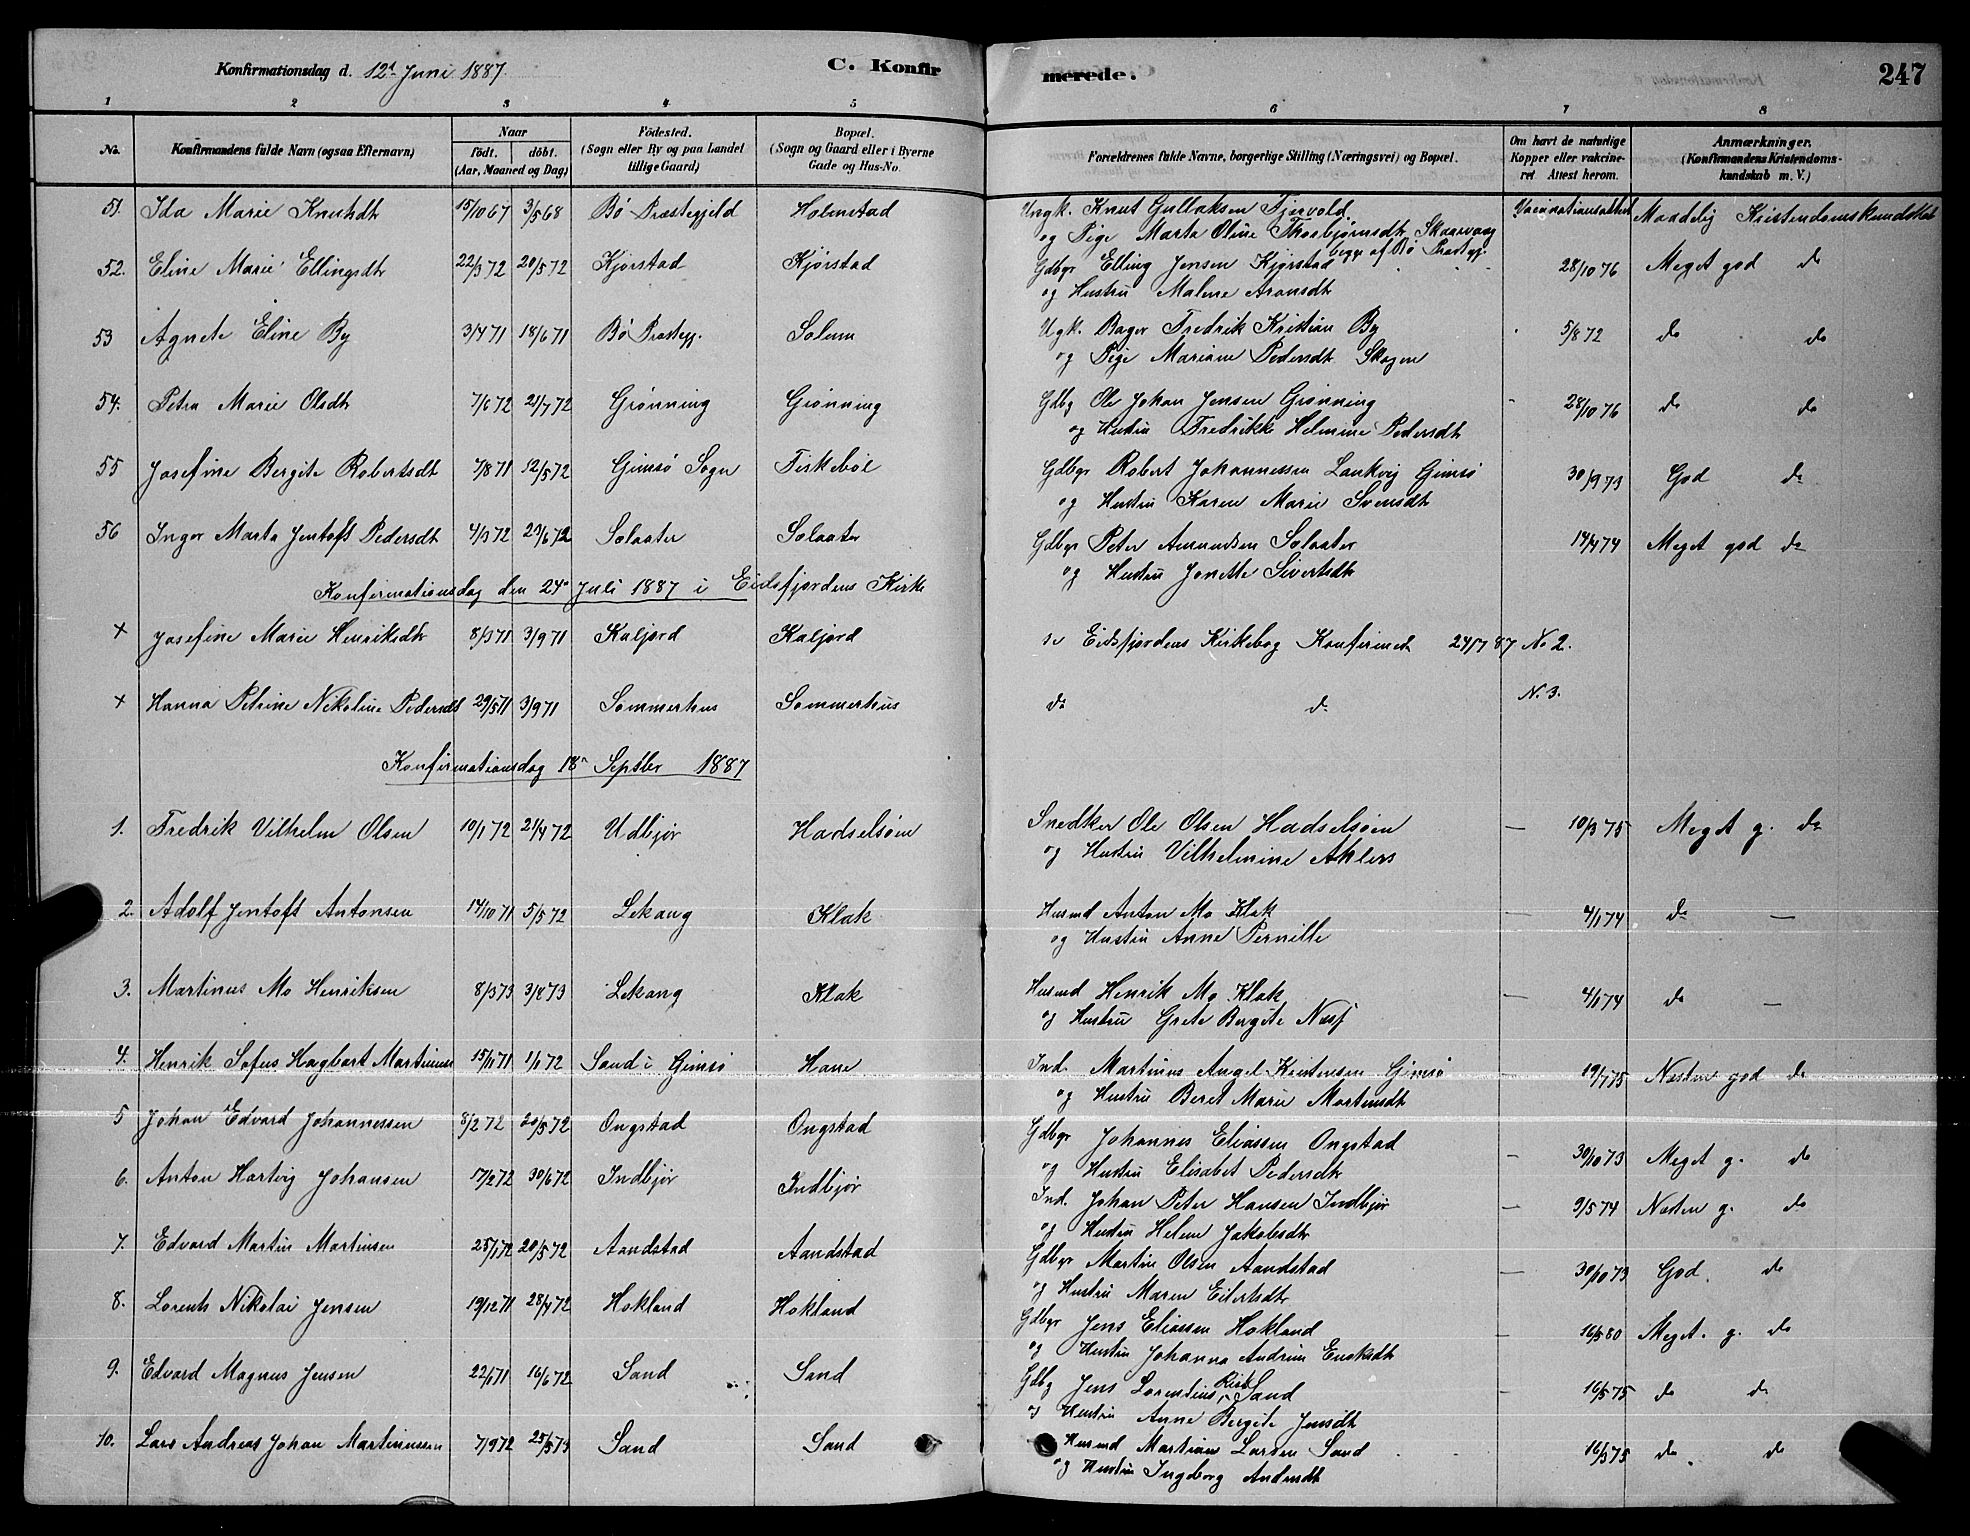 Konfirmationsdag d. 12te Juni 1887.
C. Konfirmerede.
247
1 2 3 4 5 6 7 8
No.
Konfirmandens fulde Navn (ogsaa Efternavn)
Naar
født. døbt.
(Aar, Maaned og Dag)
Födested.
(Sogn eller By og paa Landet
tillige Gaard)
Bopæl.
(Sogn og Gaard eller i Byerne
Gade og Hus-No.
Forældrenes fulde Navne, borgerlige Stilling (Næringsvei) og Bopæl.
Om havt de naturlige
Kopper eller vakcine-
ret Attest herom.
Anmærkninger.
(Konfirmandens Kristendoms-
kundskab m. V.)
51. Ida Marie Knutsdt 15/10 67 3/5 68 Bö Præstegjeld Holmstad Ungk. Knut Gullaksen Fjervold Vaccinationsattest Maadelig Kristendomskundskab
og Pige Marta Oline Thorbjørnsdt Skaarvaag
begge af Bö Præstgj.
52. Eline Marie Ellingsdt 22/3 72 20/5 72 Kjørstad Kjørstad Gdbgr Elling Jensen Kjørstad 28/10 76 Meget god do
og Hustru Malene Aronsdt
53 Agnete Eline By 3/4 71 18/6 71 Bö Præstegj. Solem Ugk. Bager Fredrik Kristian By 5/8 72 do do
og Pige Mariane Pedersdt Skagen
54. Petra Marie Olsdt 7/6 72 21/7 72 Grönning Grönning Gdbg Ole Johan Jensen Grönning 28/10 76 do do
og Hustru Fredrikke Helmine Pedersdt
55 Josefine Bergite Robertsdt 7/8 71 12/5 72 Gimsö Sogn Firkeböl Gdbgr Robert Johannessen Laukvig Gimsö 30/9 73 God do
og Hustru Karen Marie Svensdt
56 Inger Marta Jentoft Pedersdt 4/3 72 29/6 72 Solaater Solaater Gdbgr Peter Amundsen Solaater 14/4 74 Meget god do
og Hustru Jonette Sivertsdt
Konfirmationsdag den 24de Juli 1887 i Eidsfjordens Kirke
+ Josefine Marie Henriksdtr 8/3 71 3/9 71 Kaljord Kaljord se Eidsfjordens Kirkebog Konfirmet 24/7 87 No 2.
+ Hanna Petrine Nikoline Pedersdt 29/5 71 3/9 71 Sommerhus Sommerhus do do N. 3.
Konfirmationsdag 18de Septbr 1887
1. Fredrik Vilhelm Olsen 10/1 72 21/4 72 Udbjör Hadselsöen Snedker Ole Olsen Hadselsöen — 10/3 75 Meget g. do
og Hustru Vilhelmine Ahlers
2. Adolf Jentoft Antonsen 14/10 71 5/5 72 Lekang Klak Husmd Anton Mo Klak — 4/1 74 do —
og Hustru Anne Pernille
3. Martinus Mo Henriksen 8/3 73 3/8 73 Lekang Klak Husmd Henrik Mo Klak — 4/1 74 do —
og Hustru Grete Bergite Næss
4. Henrik Sofus Hagbart Martinsen 15/11 71 1/1 72 Sand i Gimsö Hane Ind. Martinus Angel Kristensen Gimsö 19/7 75 Næsten god do
og Hustru Beret Marie Martinsdt
5 Johan Edvard Johannessen 8/2 72 20/5 72 Ongstad Ongstad Gdbgr Johannes Eliassen Ongstad — 30/10 73 Meget g. do
og Hustru Elisabet Pedersdt
6. Anton Hartvig Johansen 17/2 72 30/6 72 Indbjör Indbjör Ind. Johan Peter Hansen Indbjör — 9/5 74 Næsten g. do
og Hustru Helene Jakobsdt
7. Edvard Martin Martinsen 25/1 72 20/5 72 Aandstad Aandstad Gdbgr Martin Olsen Aandstad — 30/10 73 God. do
og Hustru Maren Eilertsdt
8. Lorents Nikolai Jensen 19/12 71 28/4 72 Hokland Hokland Gdbgr Jens Eliassen Hokland — 16/5 80 Meget. g. do
og Hustru Johanna Andrine Enoksdt
9. Edvard Magnus Jensen 22/1 71 16/6 72 Sand Sand Gdbg Jens Lorentius Sand — 16/5 75 do do
og Hustru Anne Bergite Jensdt
10. Lars Andreas Johan Martinussen 7/9 72 25/5 73 Sand Sand Husmd Martinus Larsen Sand 16/3 75 do. do
og Hustru Ingeborg Andersdt